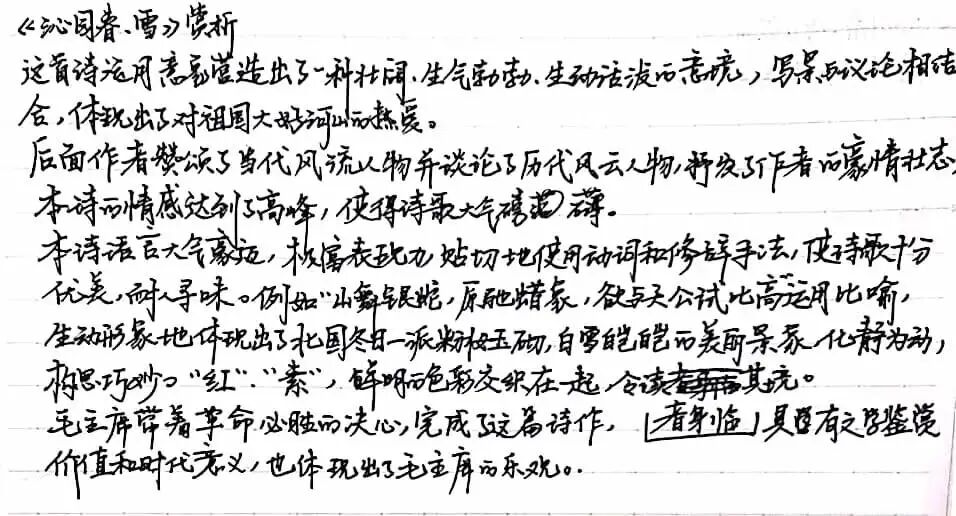 《沁园春.雪》赏析
这首诗运用意象营造出了一种壮阔.生气勃勃.生动活泼的意境，写景与议论相结
合，体现出了对祖国大好河山的热爱。
后面作者赞颂了当代风流人物并谈论了历代风云人物，抒发了作者的豪情壮志，
本诗的情感达到了高峰，使得诗歌大气磅礴。
本诗语言大气豪迈，极富表现力，贴切地使用动词和修辞手法，使诗歌十分
优美，耐人寻味。例如"山舞银蛇，原驰蜡象，欲与天公试比高运用比喻，
生动形象地体现出了北国冬日一派粉妆玉砌，白雪皑皑的美丽景象，化静为动，
构思巧妙。"红"."素"，鲜明的色彩交织在一起，令读其境。
毛主席带着革命必胜的决心，完成了这篇诗作，者身临具有文学鉴赏
价值和时代意义，也体现出了毛主席的乐观。